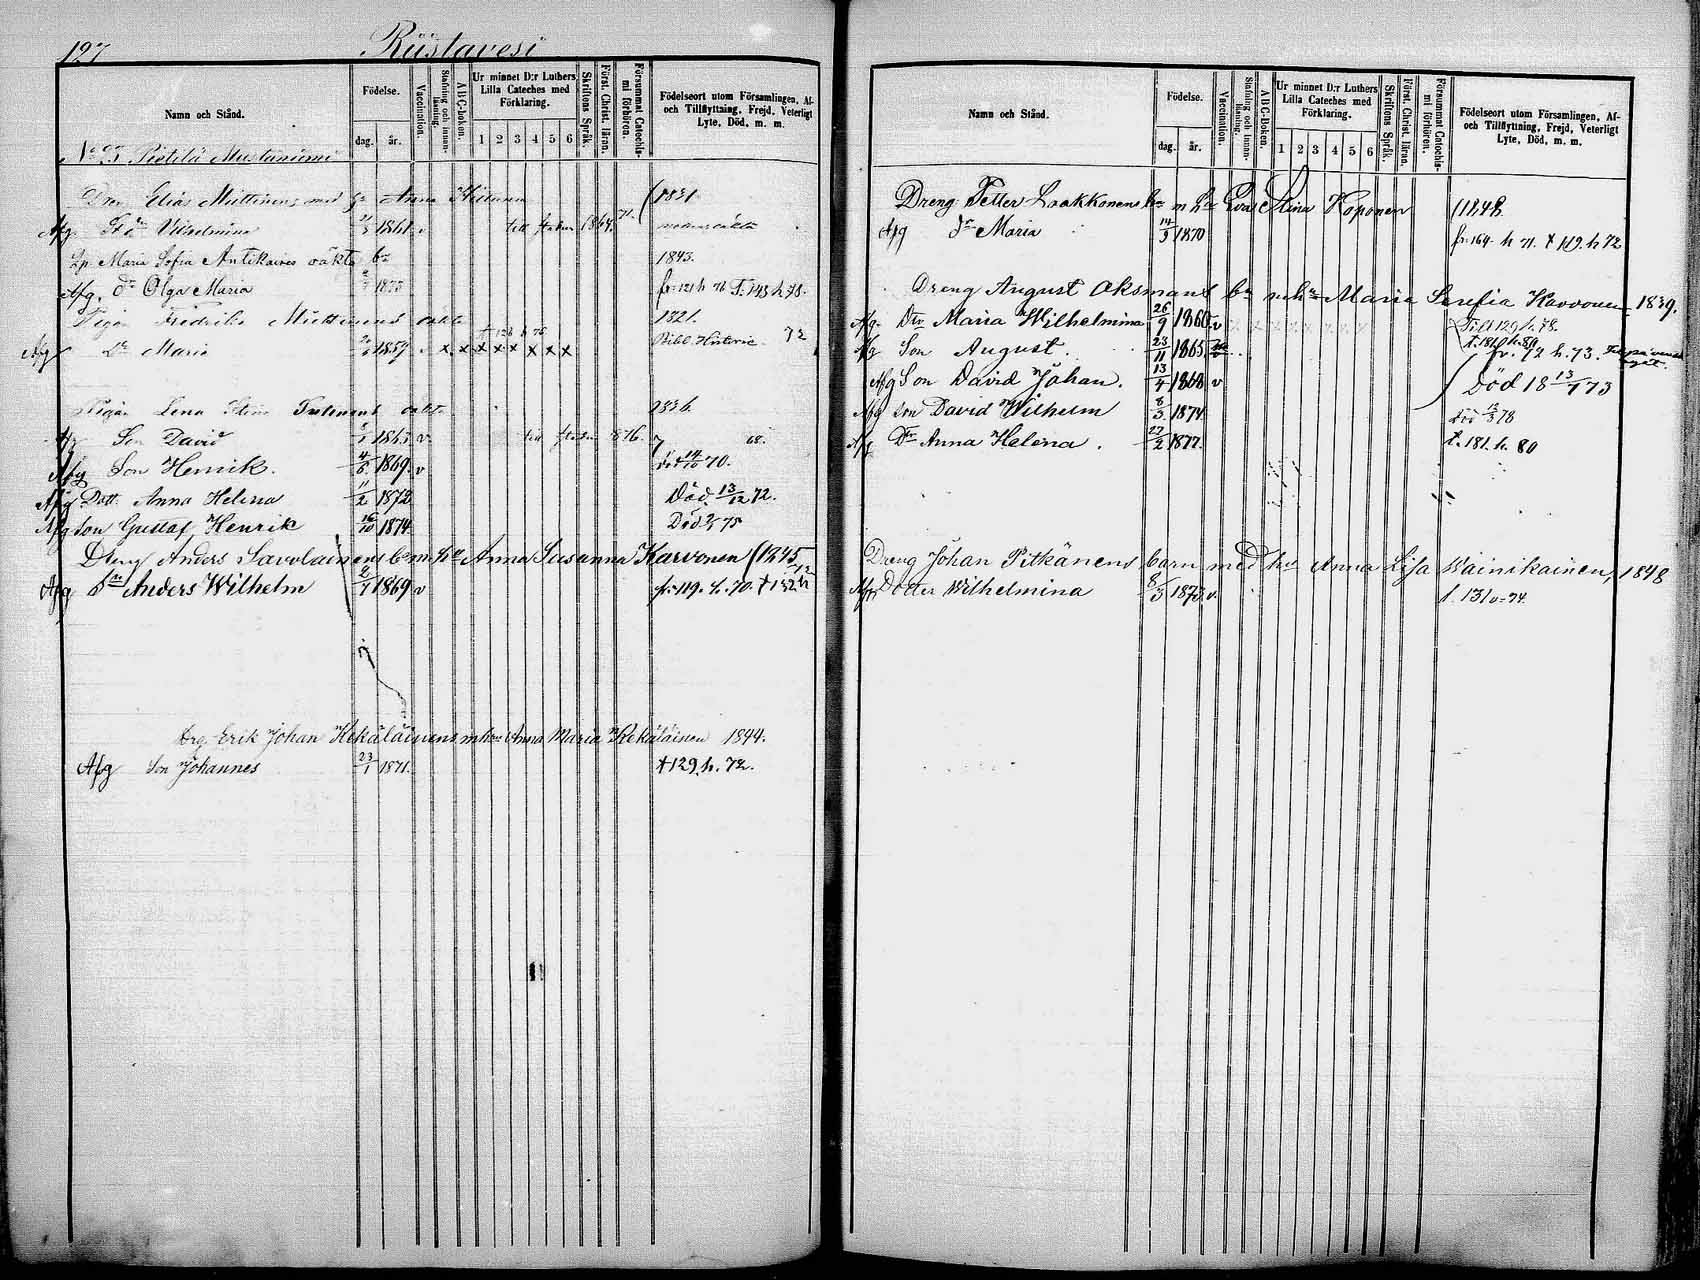 127 Riistavesi
Namn och Stånd.
Födelse.
dag. år.
Vaccination.
Stafning och innanläsning.
A B C-Boken.
Ur minnet D:r Luthers Lilla Cateches med Förklaring.
1 2 3 4 5 6
Skriftens Språk.
Först. Christ. läran.
Försummat Catechismi förhören.
Födelseort utom Församlingen, Af- och Tillflyttning, Frejd, Veterligt Lyte, Död, m. m.
Pietilä Mustaniemi
Dren Elias Miettinens med Anna 1831
Afg Vilhelmina 1861 v 1864
Maria Sofia Antikainens oäkta bn 1843.
Afg. dr Olga Maria fr 121 h 76 T. 143 h 78.
Pigan Fredrika Miettinens oäkta 1821.
Afg Dr Maria 1857 x x x x x x x x Bibl. Historia 72
Pigan Lena Stina oäkta 1836.
Son David 1863 v
Afg Son Henrik. 4/6 1869. v död 14/10 70.
Afg Dott. Anna Helena 11/2 1872 Död. 13/12 72.
Afg Son Gustaf Henrik 16/10 1874 Död 75
Dreng Anders Savolainens bn m hu Anna Susanna Karvonen (1845
Afg Sn Anders Wilhelm 2/7 1869 v fr 119. h. 70. + 132 h 72
drg Erik Johan Hekäläinens m hu Anna Maria Hekäläinen 1844.
Afg Son Johannes 23/1 1871. + 129. h. 72.
Namn och Stånd.
Födelse.
dag. år.
Vaccination.
Stafning och innanläsning.
A B C-Boken.
Ur minnet D:r Luthers Lilla Cateches med Förklaring.
1 2 3 4 5 6
Skriftens Språk.
Först. Christ. läran.
Försummat Catechismi förhören.
Födelseort utom Församlingen, Af- och Tillflyttning, Frejd, Veterligt Lyte, Död, m. m.
Dreng Petter Laakkonens bn m hu Eva Stina Koponen (1848.
Afg dr Maria 14/3 1870 fr. 164. h 71. + 119. h 72.
Dreng August Oksmans bn m hu Maria Serefia Kavvonen 1839.
Afg. Dtr Maria Wilhelmina 26/9 1860 v Till 129 h. 78.
Afg Son August. 23/11 1865 fr. 72 h. 73.
Afg Son David Johan. 13/4 1868 v Död 18 13/1 73
Afg Son David Wilhelm 8/3 1874 död 12/3 78
Afg Dtr Anna Helena. 27/2 1877. t. 181. h. 80
Dreng Johan Pitkänens barn med hu Anna Lisa Wainikainen, 1848
Afg Dotter Wilhelmina 8/3 1873 v. t. 131 v = 74.